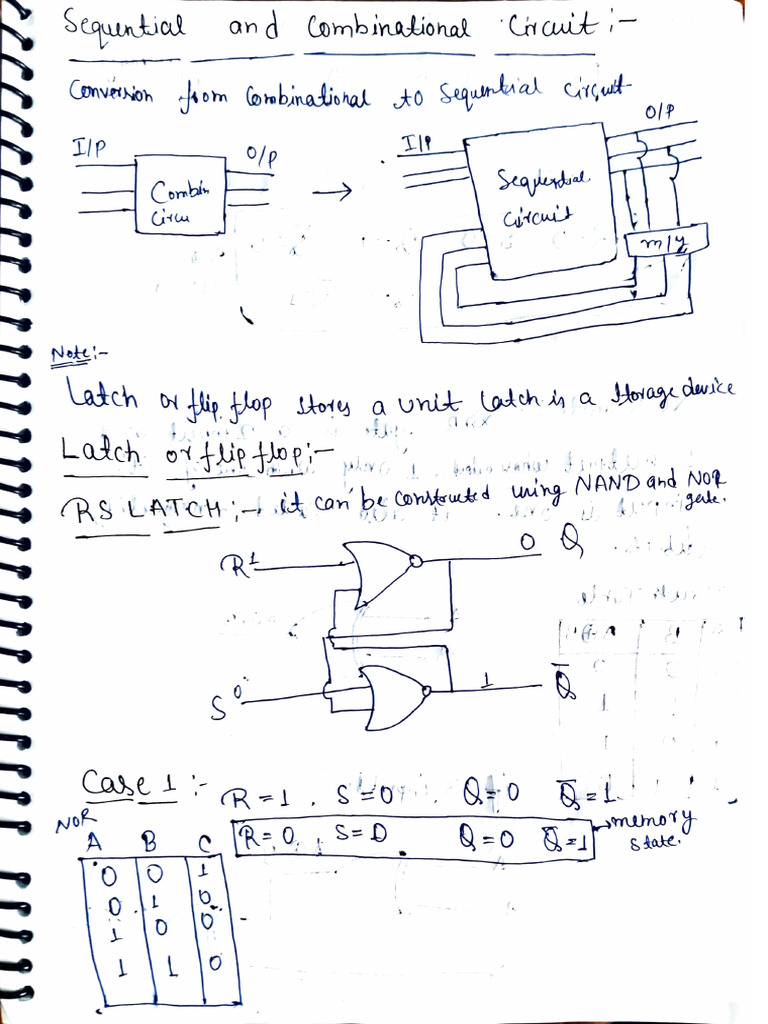 Sequential and Combinational Circuit :-
Conversion from Combinational to Sequential circuit
I/P
O/P
Combin
Circu
I/P
O/P
Sequential
Circuit
m/y
Note:-
Latch or flip flop stores a unit latch is a storage device
Latch or flip flop :-
RS LATCH :- it can be constructed using NAND and NOR
gate.
R 1
0 Q
S 0
1 Q̅
Case 1 :- R = 1 , S = 0 Q = 0 Q̅ = 1
R = 0 , S = 0 Q = 0 Q̅ = 1 → memory
state.
NOR
A B C
0 0 1
0 1 0
1 0 0
1 1 0